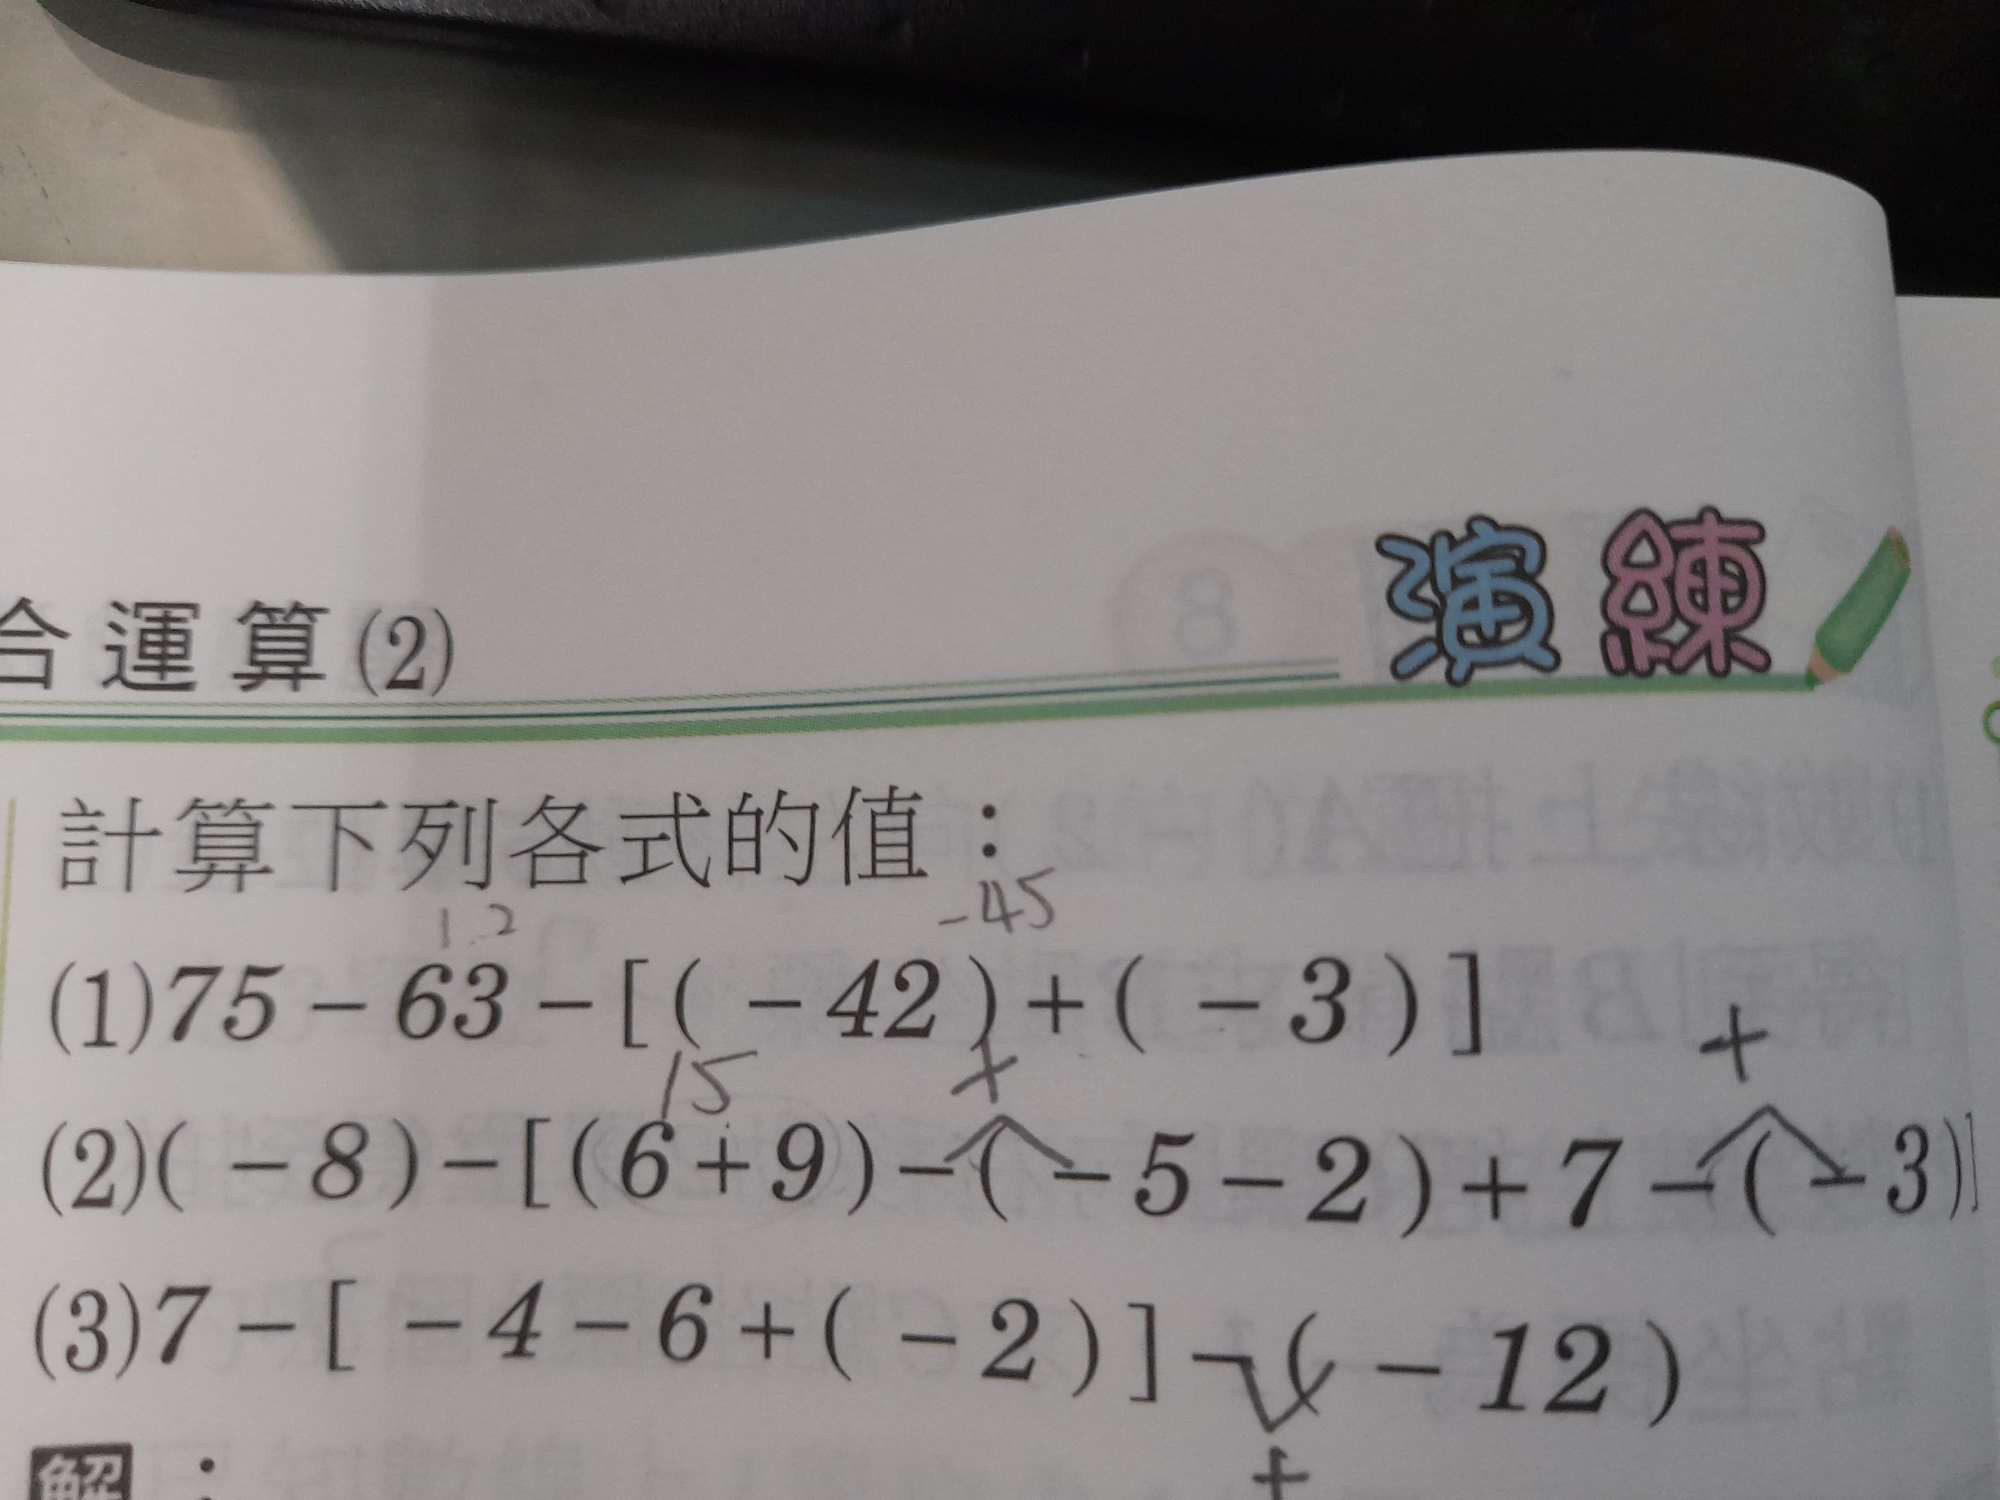 合運算(2) 演練
計算下列各式的值：
12 -45
(1)75－63－[(－42)＋(－3)]
15 + +
(2)(－8)－[(6＋9)－(－5－2)＋7－(－3)]
(3)7－[－4－6＋(－2)]－(－12)
+
解：